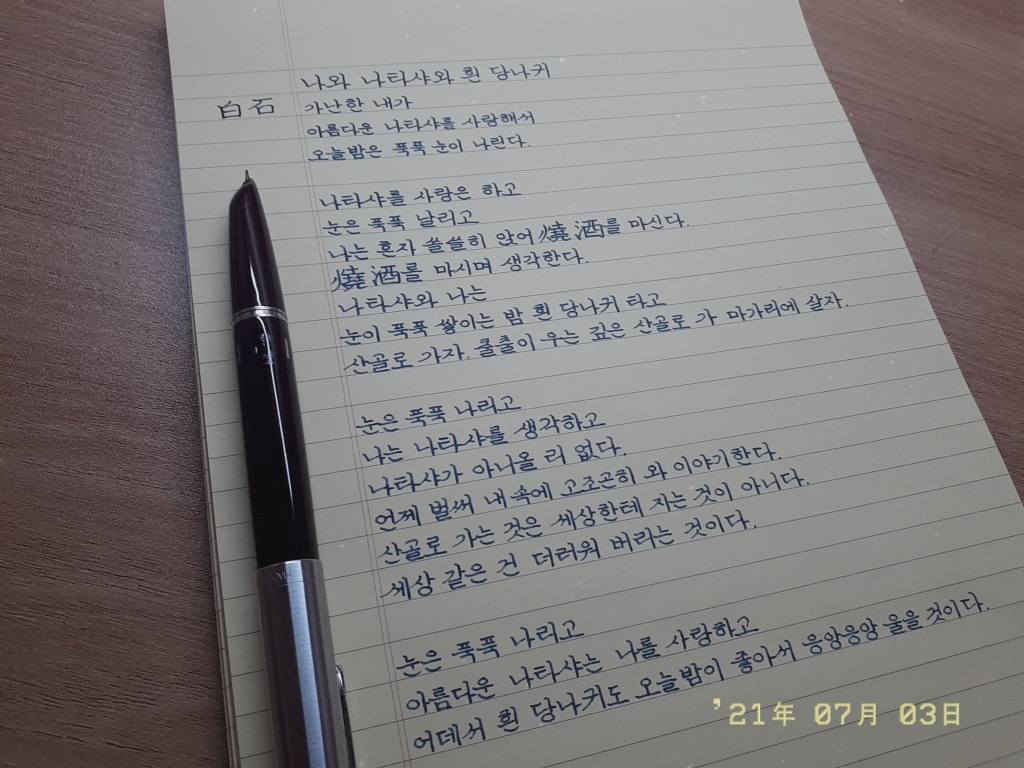 나와 나타샤와 흰 당나귀
白石
가난한 내가
아름다운 나타샤를 사랑해서
오늘밤은 푹푹 눈이 나린다.
나타샤를 사랑은 하고
눈은 푹푹 날리고
나는 혼자 쓸쓸히 앉어 燒酒를 마신다.
燒酒를 마시며 생각한다.
나타샤와 나는
눈이 푹푹 쌓이는 밤 흰 당나귀 타고
산골로 가자. 출출이 우는 깊은 산골로 가 마가리에 살자.
눈은 푹푹 나리고
나는 나타샤를 생각하고
나타샤가 아니올 리 없다.
언제 벌써 내 속에 고조곤히 와 이야기한다.
산골로 가는 것은 세상한테 지는 것이 아니다.
세상 같은 건 더러워 버리는 것이다.
눈은 푹푹 나리고
아름다운 나타샤는 나를 사랑하고
어데서 흰 당나귀도 오늘밤이 좋아서 응앙응앙 울을 것이다.
'21年 07月 03日